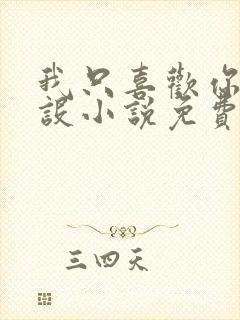 我只喜歡你
設小說免費
三四天